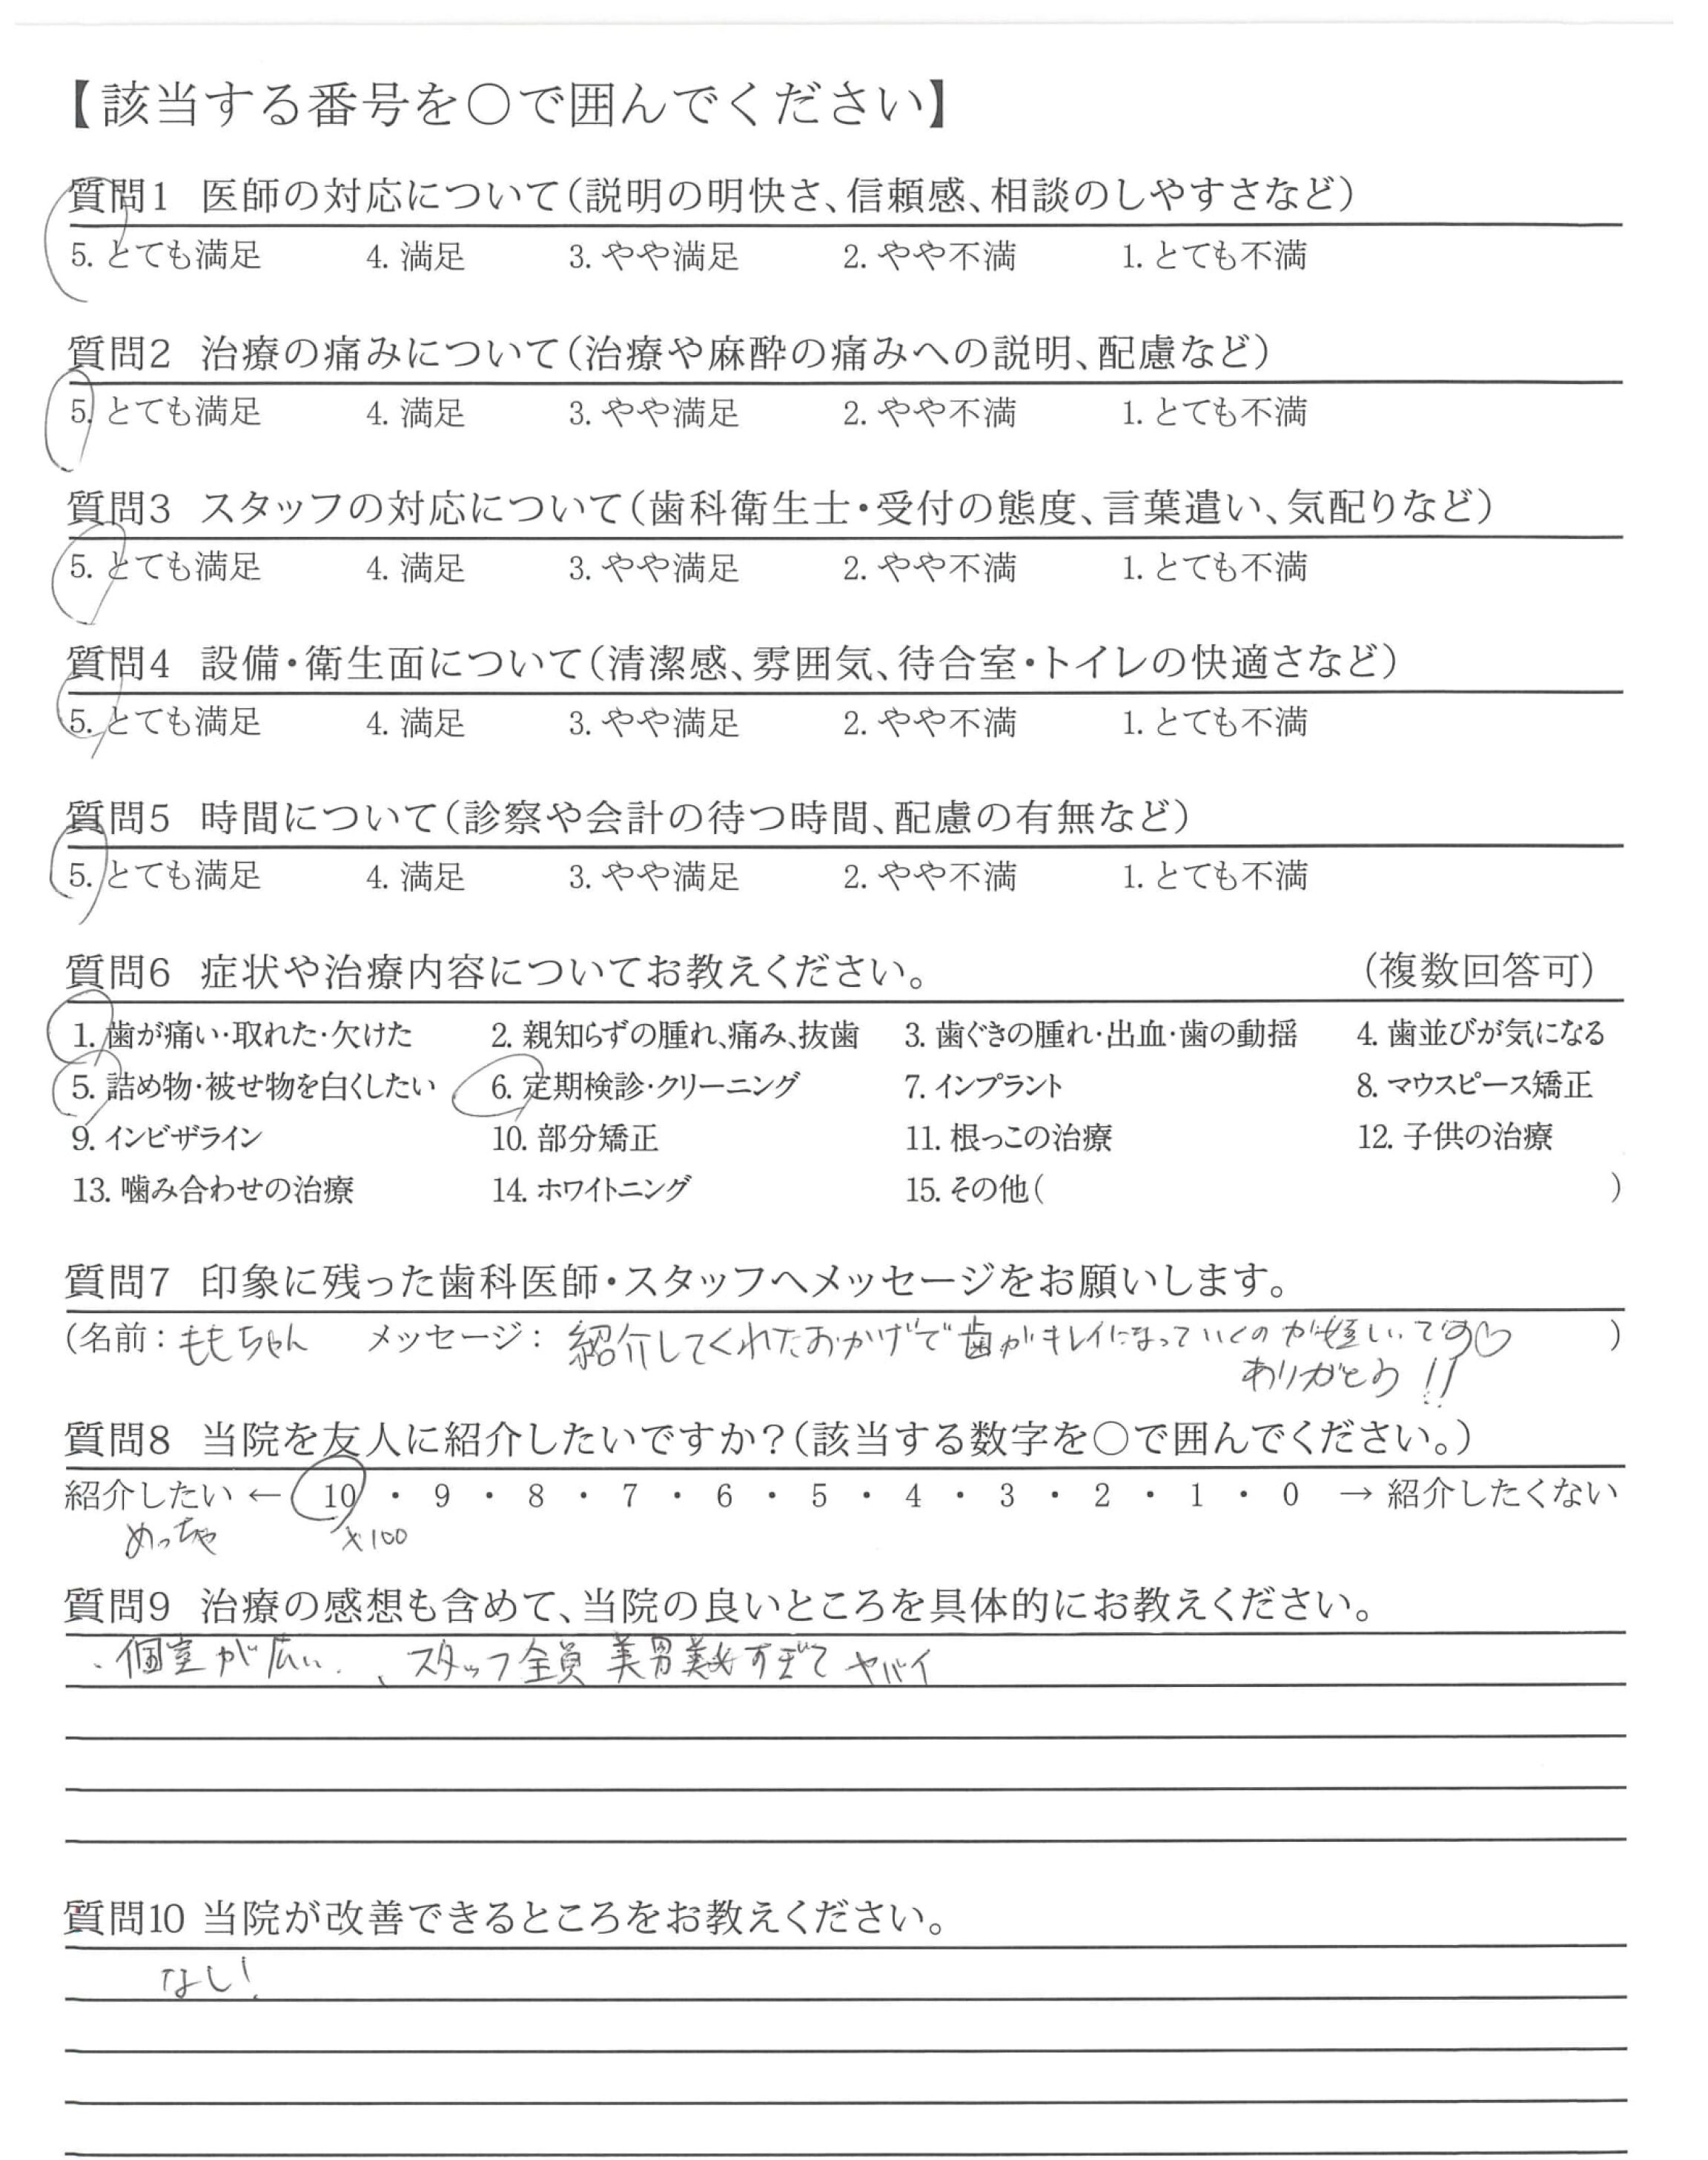 【該当する番号を○で囲んでください】
質問1 医師の対応について(説明の明快さ、信頼感、相談のしやすさなど)
5. とても満足 4. 満足 3. やや満足 2. やや不満 1. とても不満
質問2 治療の痛みについて(治療や麻酔の痛みへの説明、配慮など)
5. とても満足 4. 満足 3. やや満足 2. やや不満 1. とても不満
質問3 スタッフの対応について(歯科衛生士・受付の態度、言葉遣い、気配りなど)
5. とても満足 4. 満足 3. やや満足 2. やや不満 1. とても不満
質問4 設備・衛生面について(清潔感、雰囲気、待合室・トイレの快適さなど)
5. とても満足 4. 満足 3. やや満足 2. やや不満 1. とても不満
質問5 時間について(診察や会計の待つ時間、配慮の有無など)
5. とても満足 4. 満足 3. やや満足 2. やや不満 1. とても不満
質問6 症状や治療内容についてお教えください。 (複数回答可)
1. 歯が痛い・取れた・欠けた 2. 親知らずの腫れ、痛み、抜歯 3. 歯ぐきの腫れ・出血・歯の動揺 4. 歯並びが気になる
5. 詰め物・被せ物を白くしたい 6. 定期検診・クリーニング 7. インプラント 8. マウスピース矯正
9. インビザライン 10. 部分矯正 11. 根っこの治療 12. 子供の治療
13. 噛み合わせの治療 14. ホワイトニング 15. その他( )
質問7 印象に残った歯科医師・スタッフへメッセージをお願いします。
(名前：ももちゃん メッセージ：紹介してくれたおかげで歯がキレイになっていくのが嬉しいです♡ )
ありがとう!!
質問8 当院を友人に紹介したいですか?(該当する数字を○で囲んでください。)
紹介したい ← 10 ・ 9 ・ 8 ・ 7 ・ 6 ・ 5 ・ 4 ・ 3 ・ 2 ・ 1 ・ 0 → 紹介したくない
めっちゃ ×100
質問9 治療の感想も含めて、当院の良いところを具体的にお教えください。
・個室が広い. 、スタッフ全員 美男美女すぎて ヤバイ
質問10 当院が改善できるところをお教えください。
なし!